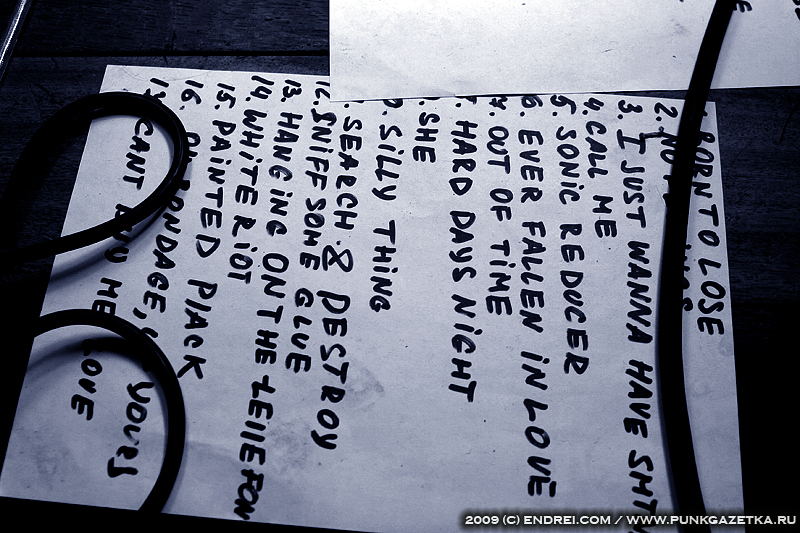 BORN TO LOSE
2. NO
3. I JUST WANNA HAVE SMT
4. CALL ME
5. SONIC REDUCER
6. EVER FALLEN iN LOVE
7. OUT OF TiME
HARD DAYS NiGHT
SHE
SiLLY THiNG
SEARCH & DESTROY
SNiFF SOME GLUE
13. HANGiNG ON THE LEllEFON
14. WHiTE RiOT
15. PAiNTED PJACK
16. BONDAGE, YOURS
CANT ME
2009 (C) ENDREI.COM / WWW.PUNKGAZETKA.RU